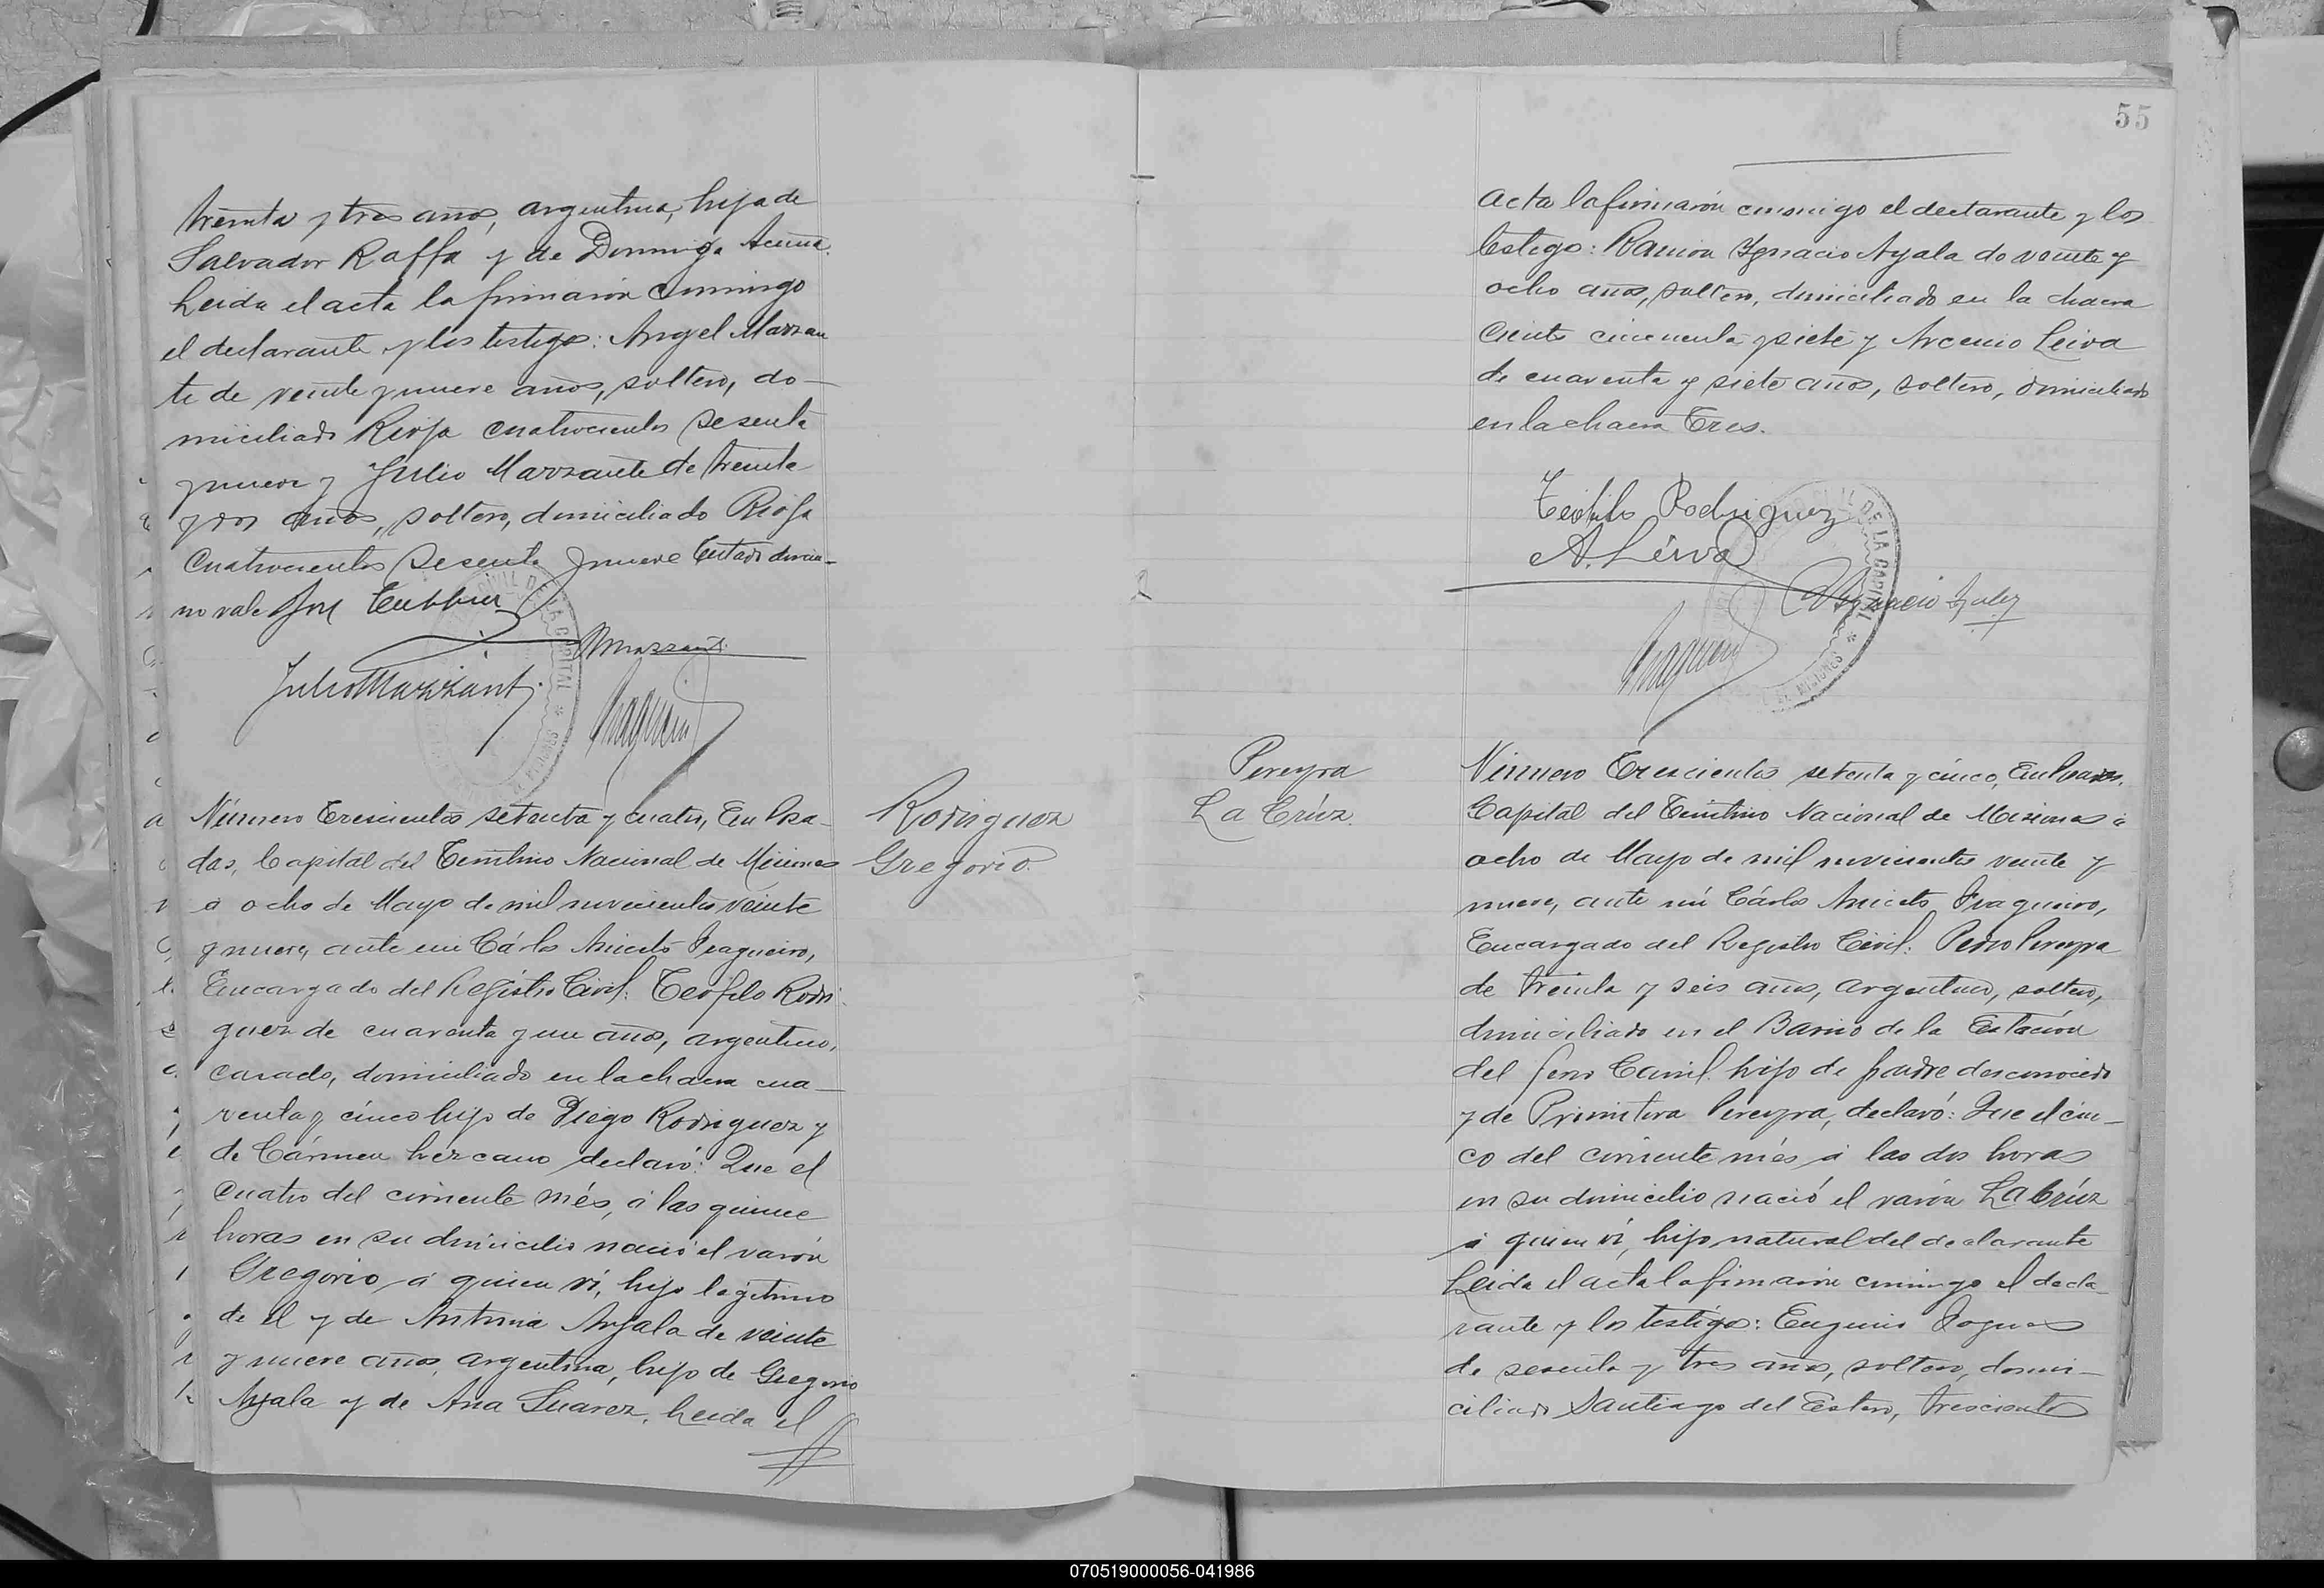 treinta y tres años, argentina, hija de
Salvador Raffa y de Dominga Acuña.
Leida el acta la firmaron conmigo
el declarante y los testigos: Angel Marzan
te de veinte y nueve años, soltero, do-
miciliado Rioja cuatrocientos sesenta
y nueve y Julio Marzante de treinta
y dos años, soltero, domiciliado Rioja
cuatrocientos sesenta y nueve Testado
no vale
Julio Mazzanti
Número Trescientos setenta y cuatro, En Posa-
das, Capital del Territorio Nacional de Misiones
a ocho de Mayo de mil novecientos veinte
y nueve, ante mi Cárlos Aniceto Fragueiro,
Encargado del Registro Civil: Teofilo Rodri
guez de cuarenta y un años, argentino,
casado, domiciliado en la chacra cua-
renta y cinco hijo de Diego Rodriguez y
de Cármen Lezcano declaró: Que el
cuatro del corriente més, á las quince
horas en su domicilio nació el varón
Gregorio á quien ví, hijo legitimo
de él y de Antonia Ayala de veinte
y nueve años, argentina, hija de Gregorio
Ayala y de Ana Suarez. Leida el
Rodriguez
Gregorio.
55
acta la firmarón conmigo el declarante y los
testigo: Ramón Ignacio Ayala de veinte y
ocho años, soltero, domiciliado en la chacra
ciento cincuenta y siete y Arcenio Leiva
de cuarenta y siete años, soltero, domiciliado
en la chacra Tres.
Teófilo Rodriguez
A. Leiva
Ignacio Ayala
CIVIL DE LA CAPITAL * MISIONES
Pereyra
La Crúz.
Número Trescientos setenta y cinco, En Posadas,
Capital del Territorio Nacional de Misiones á
ocho de Mayo de mil novecientos veinte y
nueve, ante mí Cárlos Aniceto Fragueiro,
Encargado del Registro Civil: Pedro Pereyra
de treinta y seis años, argentino, soltero,
domiciliado en el Barrio de la Estación
del ferro Carril. hijo de padre desconocido
y de Primitiva Pereyra, declaró: Que el cin-
co del corriente més á las dos horas
en su domicilio nació el varón La Crúz
á quien ví, hijo natural del declarante
Leida el acta la firmarón conmigo el decla-
rante y los testigos: Eugenio
de sesenta y tres años, soltero, domi-
ciliado Santiago del Estero, trescientos
070519000056-041986